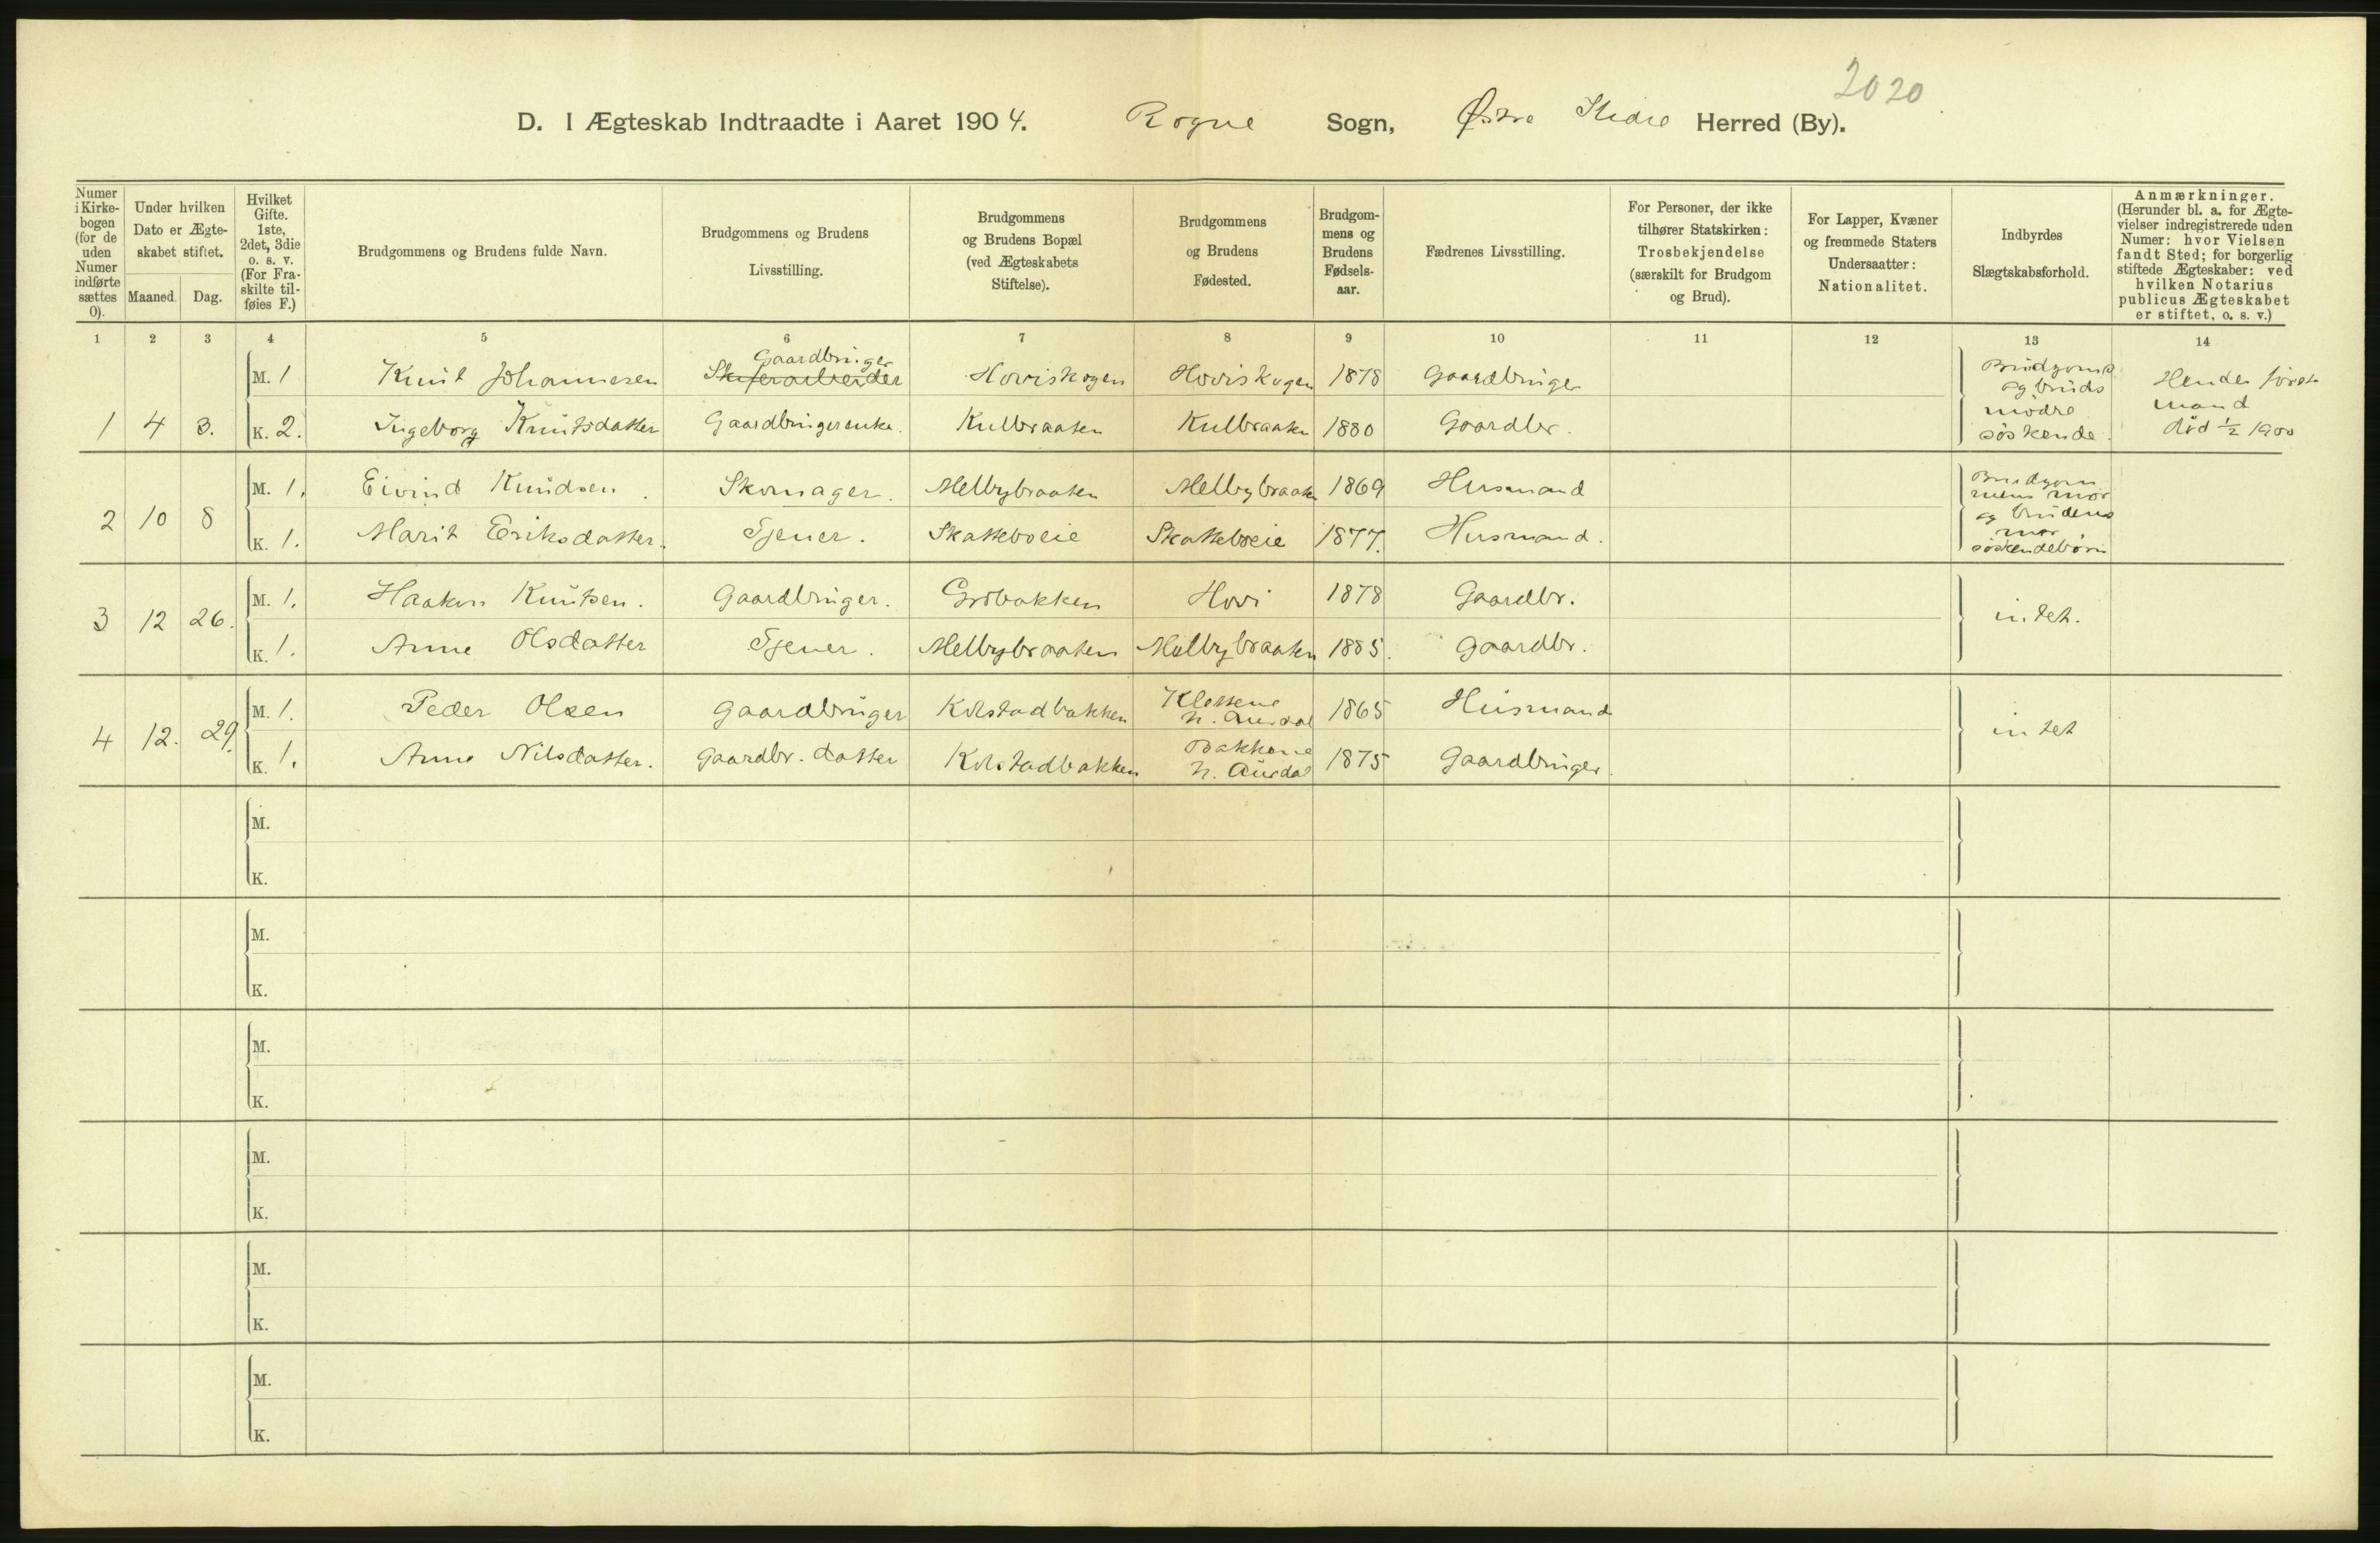 2020
D. I Ægteskab Indtraadte i Aaret 1904. Rogne Sogn, Østre Slidre Herred (By).
Numer i Kirkebogen (for de uden Numer indførte sættes 0).
Under hvilken Dato er Ægteskabet stiftet.
Maaned. Dag.
Hvilket Gifte. 1ste, 2det, 3die o. s. v. (For Fraskilte tilføies F.)
Brudgommens og Brudens fulde Navn.
Brudgommens og Brudens Livsstilling.
Brudgommens og Brudens Bopæl (ved Ægteskabets Stiftelse).
Brudgommens og Brudens Fødested.
Brudgommens og Brudens Fødselsaar.
Fædrenes Livsstilling.
For Personer, der ikke tilhører Statskirken: Trosbekjendelse (særskilt for Brudgom og Brud).
For Lapper, Kvæner og fremmede Staters Undersaatter: Nationalitet.
Indbyrdes Slægtskabsforhold.
Anmærkninger. (Herunder bl. a. for Ægtevielser indregistrerede uden Numer: hvor Vielsen fandt Sted; for borgerlig stiftede Ægteskaber: ved hvilken Notarius publicus Ægteskabet er stiftet, o. s. v.)
1 2 3 4 5 6 7 8 9 10 11 12 13 14
M. 1 Knut Johannesen Skiferarbeider Gaardbruger Hoviskogen Hoviskogen 1878 Gaardbruger
1 4 3. K. 2. Ingeborg Knutsdatter Gaardbrugerenke. Kulbraaten Kulbraaten 1880 Gaardbr.
Brudgoms og bruds mødre søskende.
Hendes første mand død 1/2 1900
M. 1. Eivind Knudsen. Skomager. Melbybraaten Melbybraaten 1869 Husmand
2 10 8 K. 1. Marit Eriksdatter. Tjener. Skattebøeie Skattebøeie 1877. Husmand.
Brudgommens mor og brudens mor søskendebørn
M. 1. Haakon Knutsen. Gaardbruger. Grøbakken Hovi 1878 Gaardbr.
3 12 26. K. 1. Anne Olsdatter Tjener. Melbybraaten Melbybraaten 1885. Gaardbr.
intet.
M. 1. Peder Olsen Gaardbruger Kolstadbakken Klossene N. Aurdal 1865 Husmand
4 12. 29. K. 1. Anne Nilsdatter. Gaardbr. datter Kolstadbakken Bakkene N. Aurdal 1875 Gaardbruger.
intet
M.
K.
M.
K.
M.
K.
M.
K.
M.
K.
M.
K.